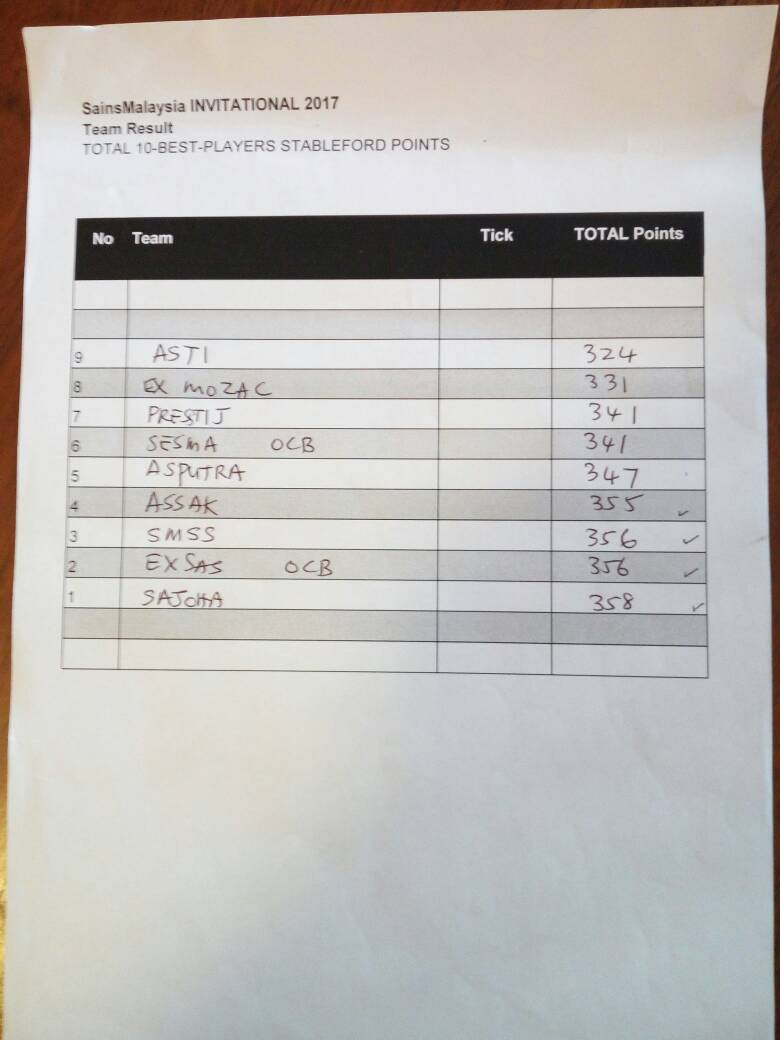 SainsMalaysia INVITATIONAL 2017
Team Result
TOTAL 10-BEST-PLAYERS STABLEFORD POINTS
No Team Tick TOTAL Points
9 ASTI 324
8 EX MOZAC 331
7 PRESTIJ 341
6 SESMA OCB 341
5 ASPUTRA 347
4 ASSAK 355 ✓
3 SMSS 356 ✓
2 EXSAS OCB 356 ✓
1 SAJOHA 358 ✓